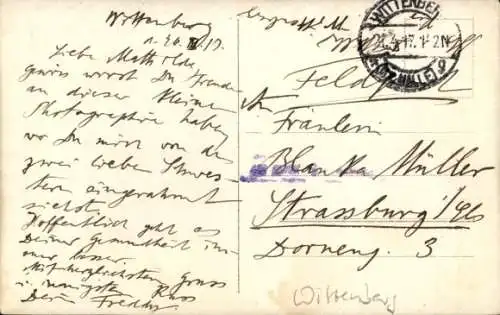 Wittenberg
d. 26. III. 17.
Liebe Mathilde
gewis wirst Du Freude
an dieser kleine
Photographie haben
wo Du mich von den
zwei lieben Schwes-
tern eingerahmt
siehst.
Hoffentlich geht es
Deiner Gesundheit im-
mer besser.
Mit herzlichstem Gruss
u. innigste Kuss
Dein Freddy
WITTENBERG
4.17. 1-2N
(BZ. HALLE)
Feldpost
An
Fräulein
Blanka Müller
Strassburg i/Els
Dorneng. 3
Wittenberg